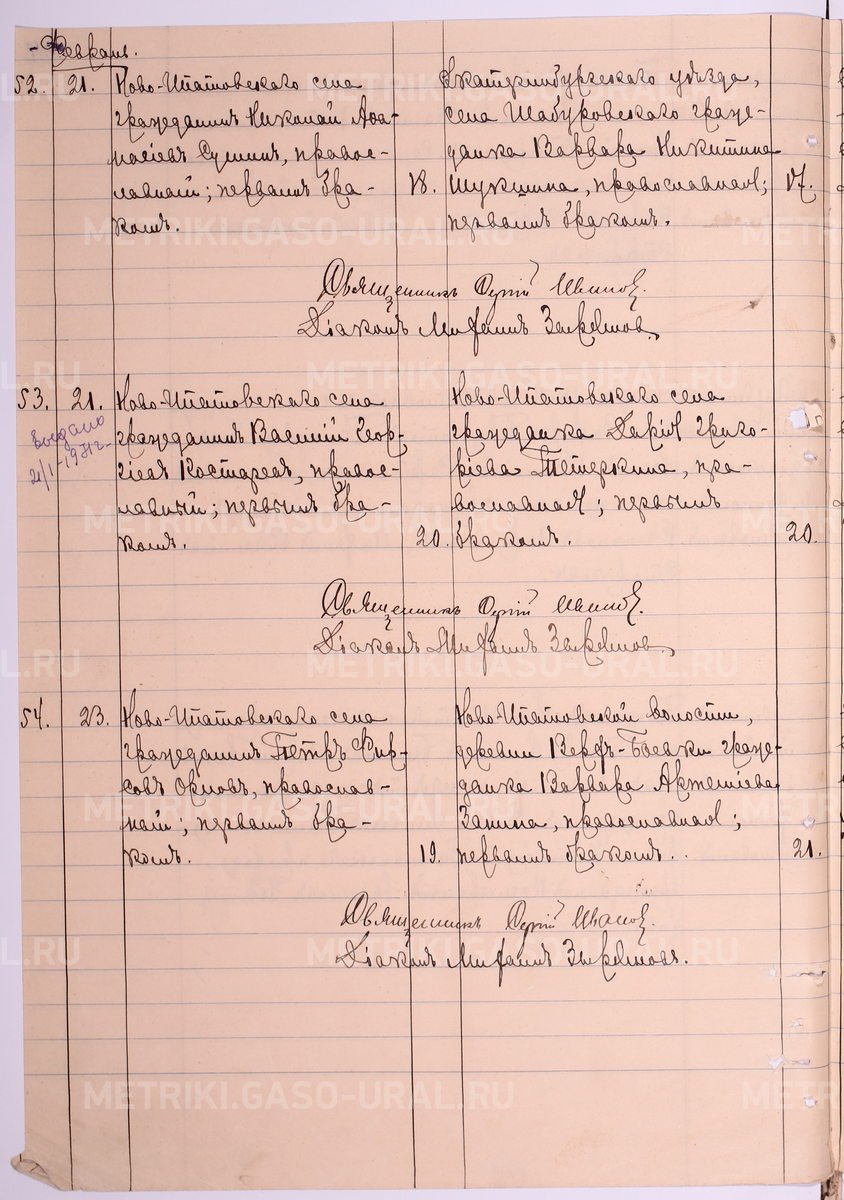 Февраль.
52. 21. Ново-Ипатовскаго села
гражданинъ Николай Афа-
насіевъ Сушинъ, правос-
лавный; первымъ бра-
комъ.
18.
Екатеринбургскаго уѣзда,
села Шабуровскаго граж-
данка Варвара Никитина
Шукшина, православная;
первымъ бракомъ.
17.
Священникъ Сергій Ивановъ.
Діаконъ Мифаилъ
53. 21. Ново-Ипатовскаго села
гражданинъ Василий Геор-
гіевъ Костаревъ, правос-
лавный; первымъ бра-
комъ.
20.
Ново-Ипатовскаго села
гражданка Дарія Григо-
ріева Тетеркина, пра-
вославная; первымъ
бракомъ.
20.
Выдано
21/I-1931г.
Священникъ Сергій Ивановъ.
Діаконъ Мифаилъ
54. 23. Ново-Ипатовскаго села
гражданинъ Петръ Фир-
совъ Орловъ, православ-
ный; первымъ бра-
комъ.
19.
Ново-Ипатовской волости,
деревни Верхъ-Боевки граж-
данка Варвара Артеміева
Занина, православная;
первымъ бракомъ.
21.
Священникъ Сергій Ивановъ.
Діаконъ Мифаилъ
METRIKI.GASO-URAL.RU